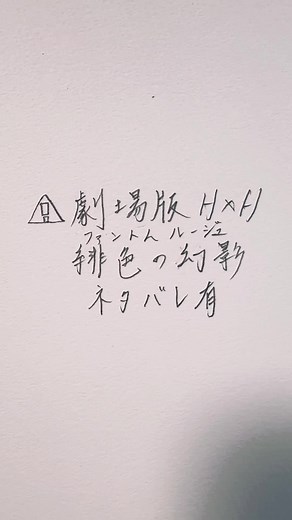 劇場版 H×H
ファントム ルージュ
緋色の幻影
ネタバレ有